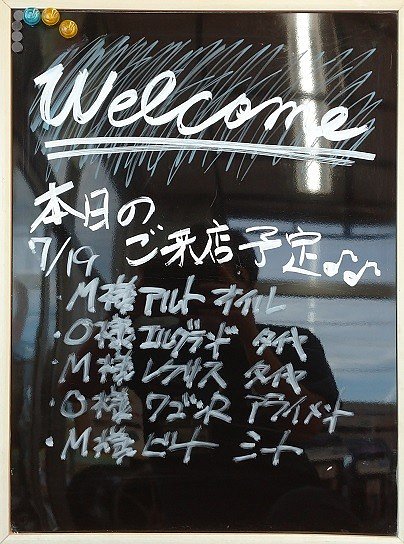 Welcome
本日の
7/19 ご来店予定♪♫
・M様 アルト オイル
・O様 エルグランド タイヤ
・M様 レクサス タイヤ
・O様 ワゴンR アライメント
・M様 ビート シート